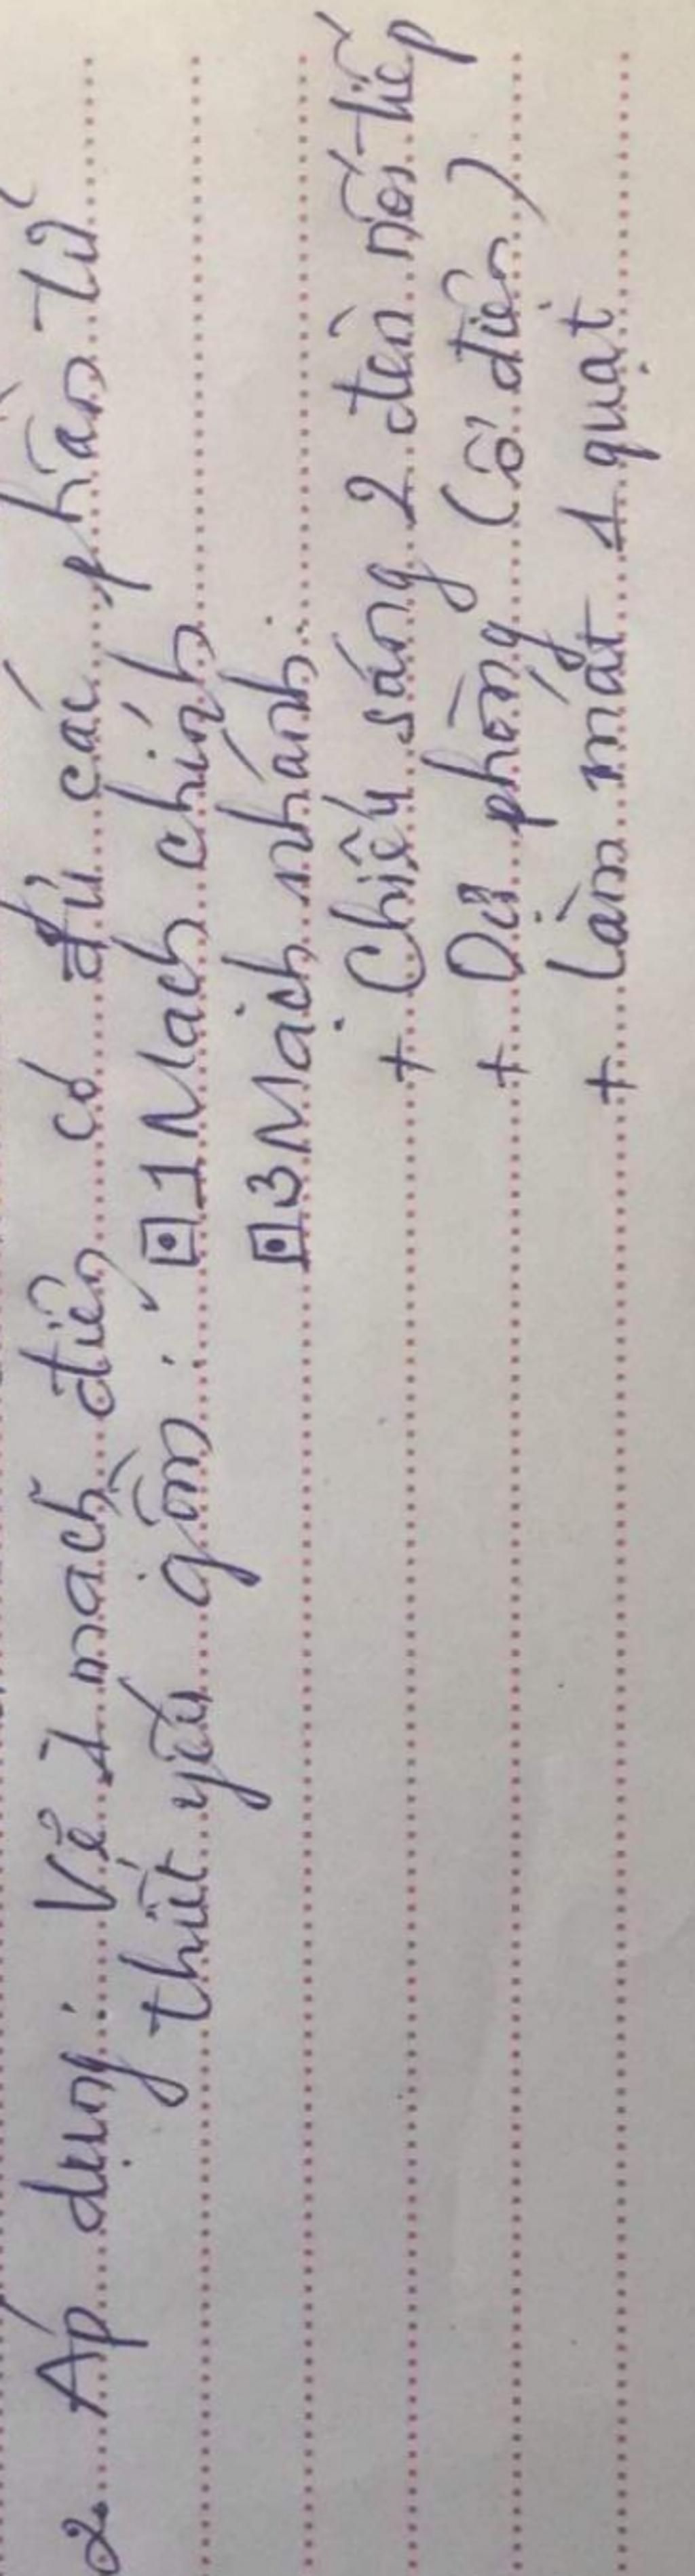 2. Áp dụng: Vẽ 1 mạch điện có đủ các phần tử
thiết yếu gồm: ⊡ 1 Mạch chính
⊡ 3 Mạch nhánh:
+ Chiếu sáng 2 đèn nối tiếp
+ Dự phòng (ổ điện)
+ Làm mát 1 quạt